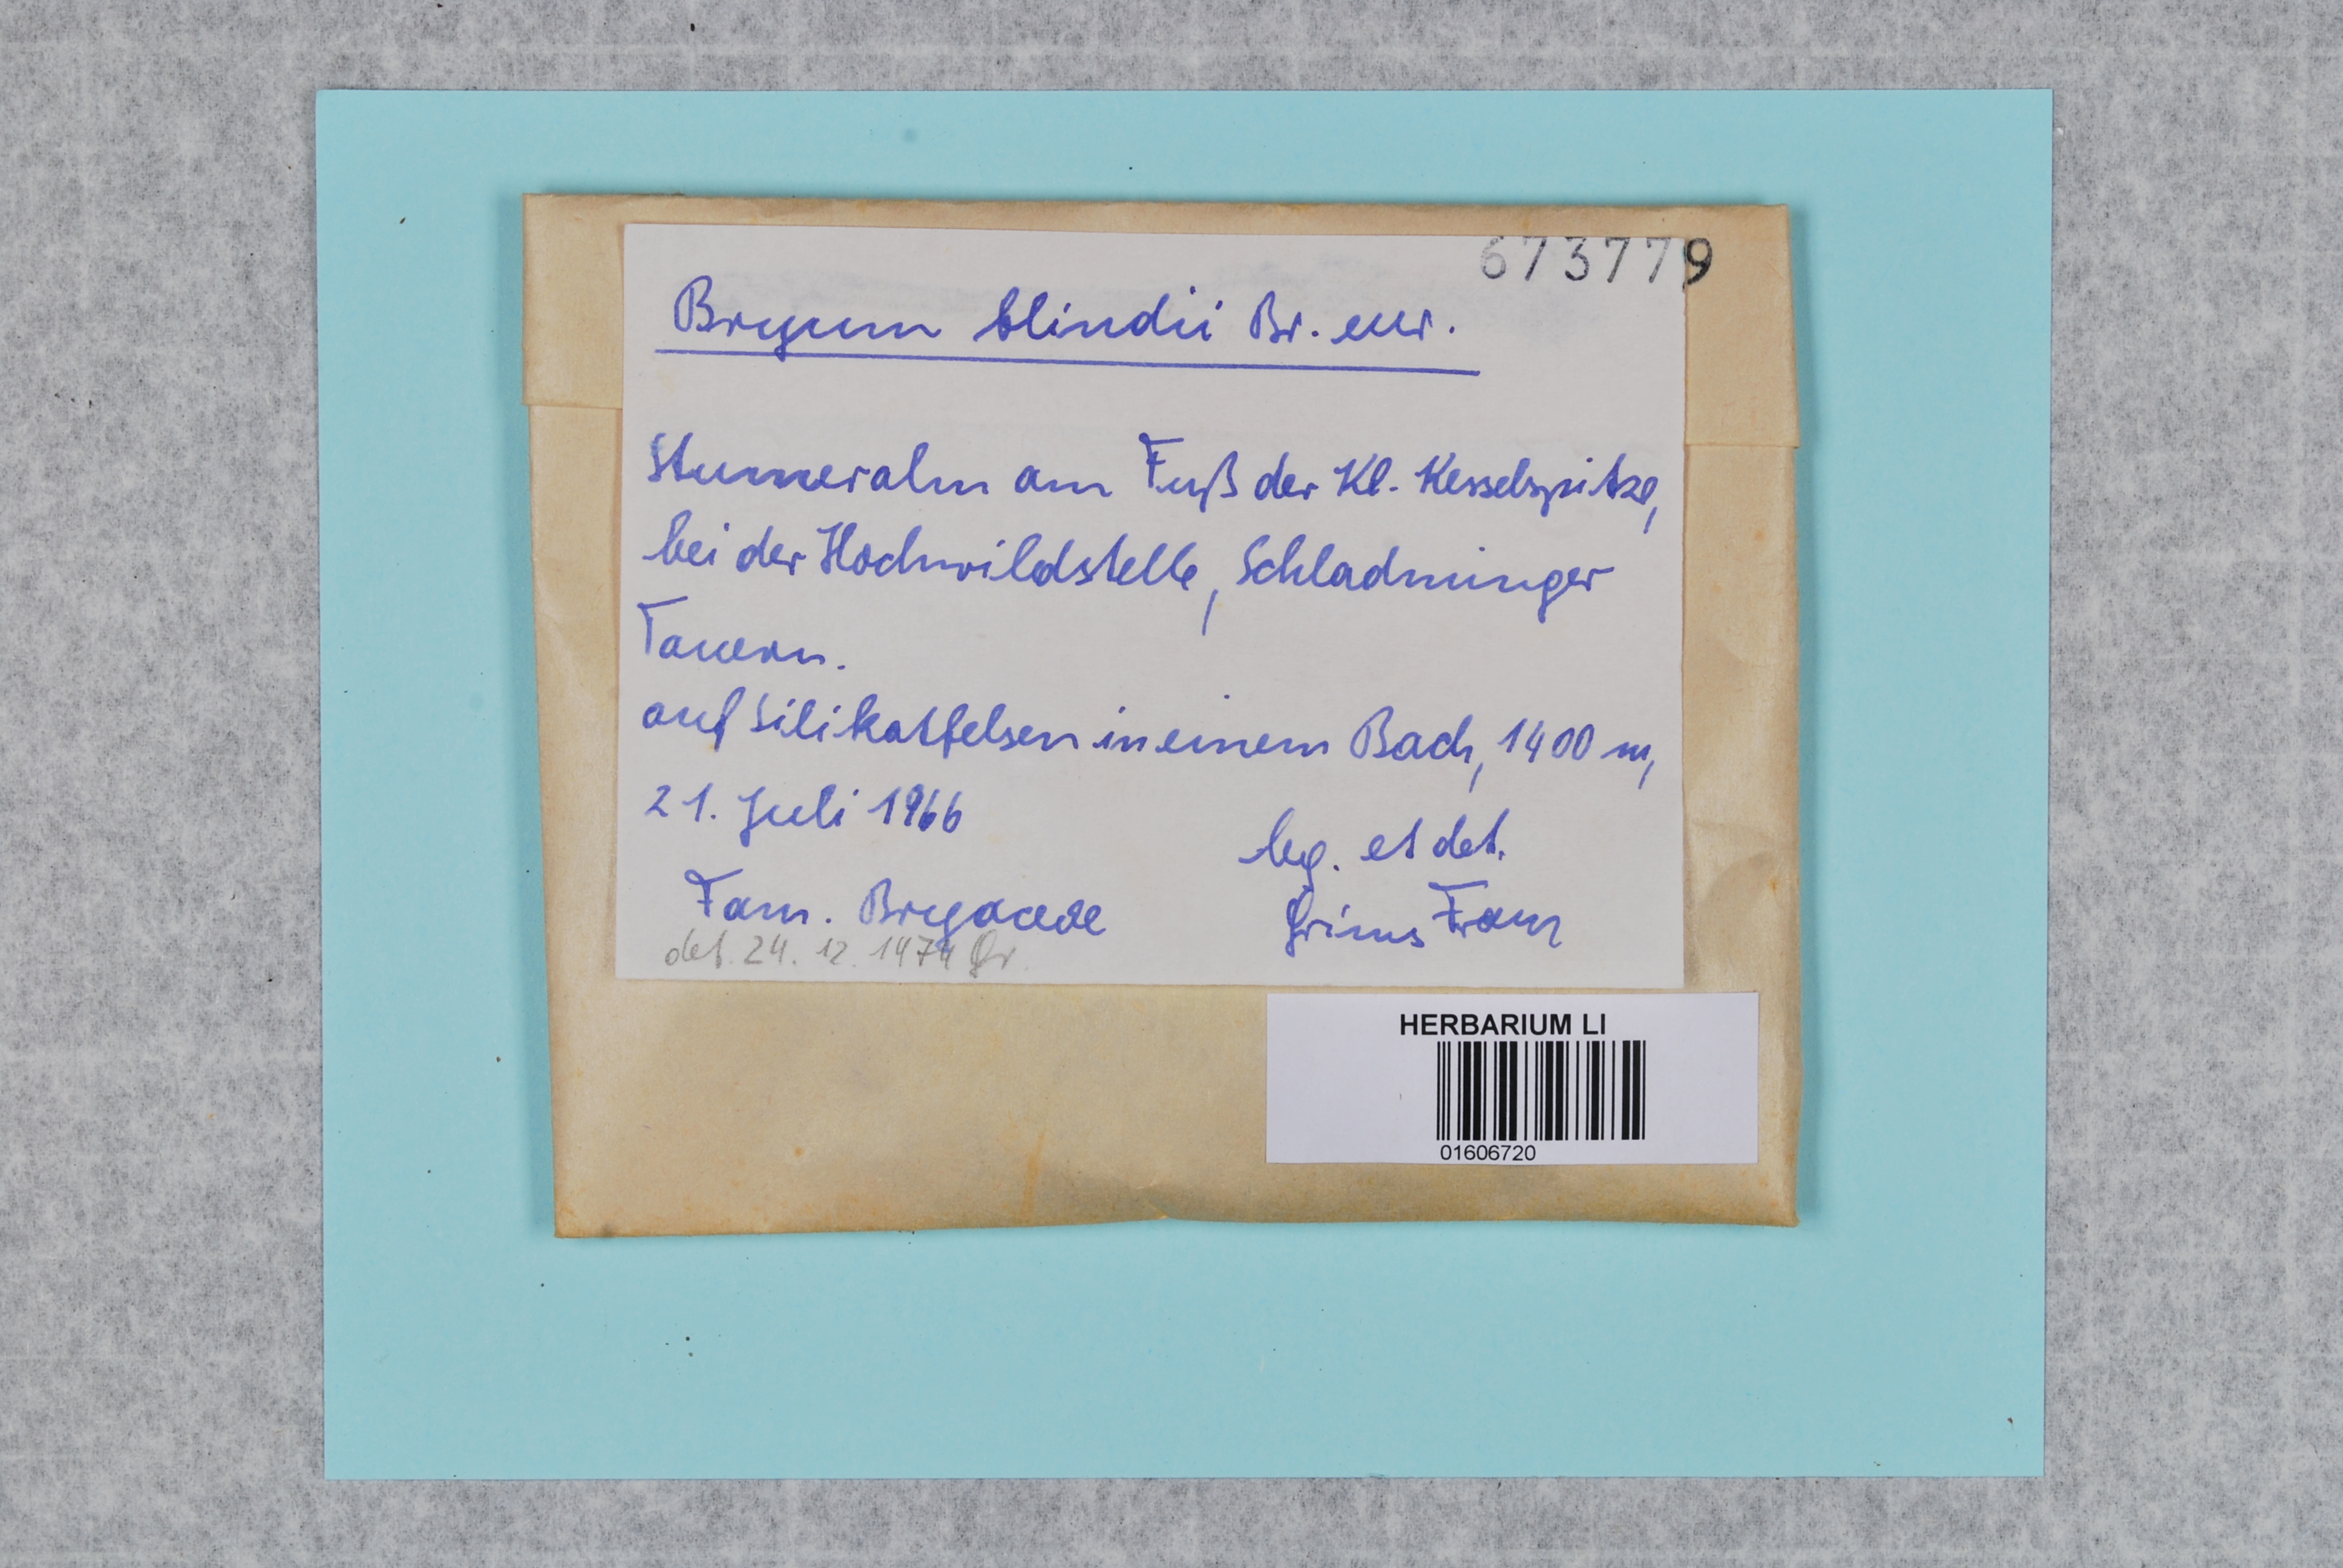 673779
Bryum blindii Br. eur.
Stummeralm am Fuß der Kl. Kesselspitze,
bei der Hochwildstelle, Schladminger
Tauern.
auf Silikatfelsen in einem Bach, 1400 m,
21. Juli 1966
leg. et det.
Fam. Bryaceae
Grims Franz
det. 24. 12. 1974 Gr.
HERBARIUM LI
01606720